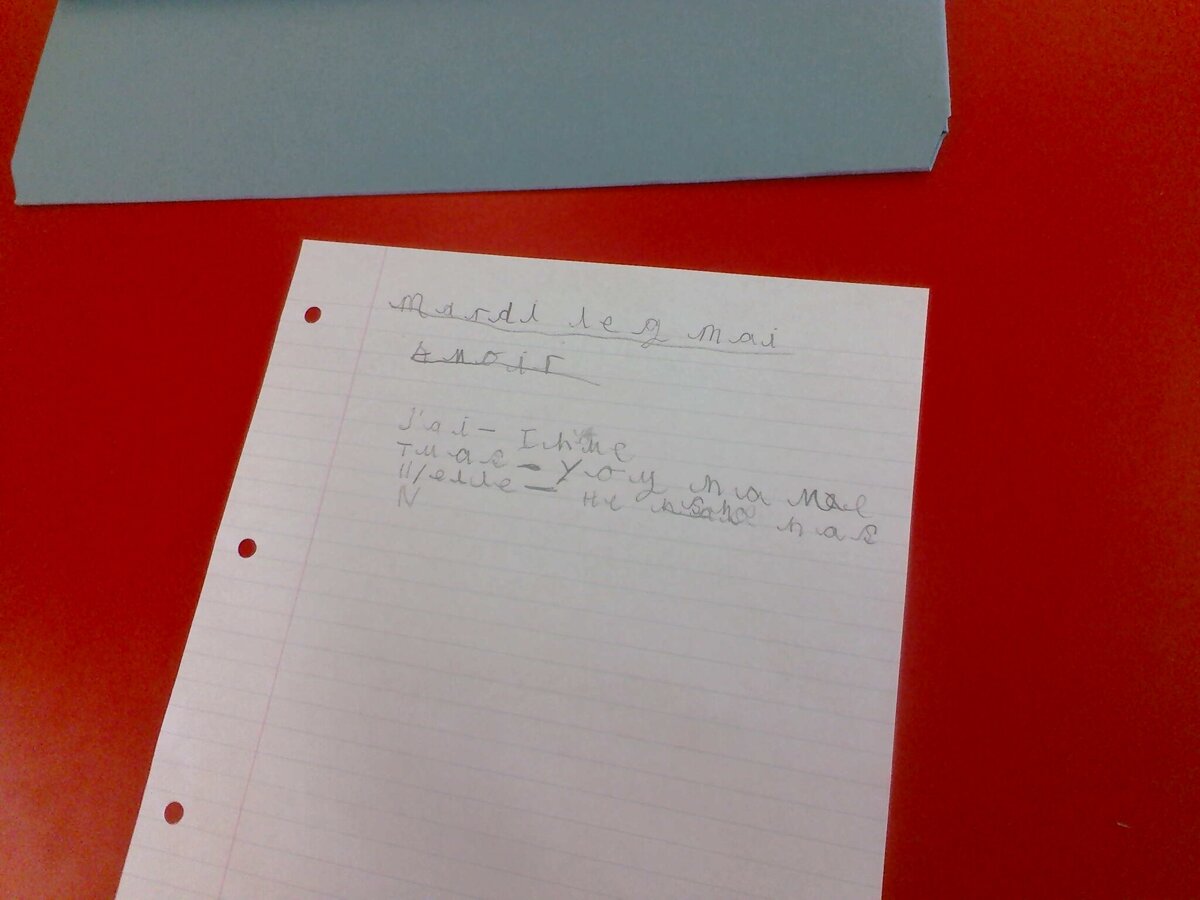 mardi le 9 mai
Avoir
J'ai - I have
Tu as - You have
Il/elle - He has
N